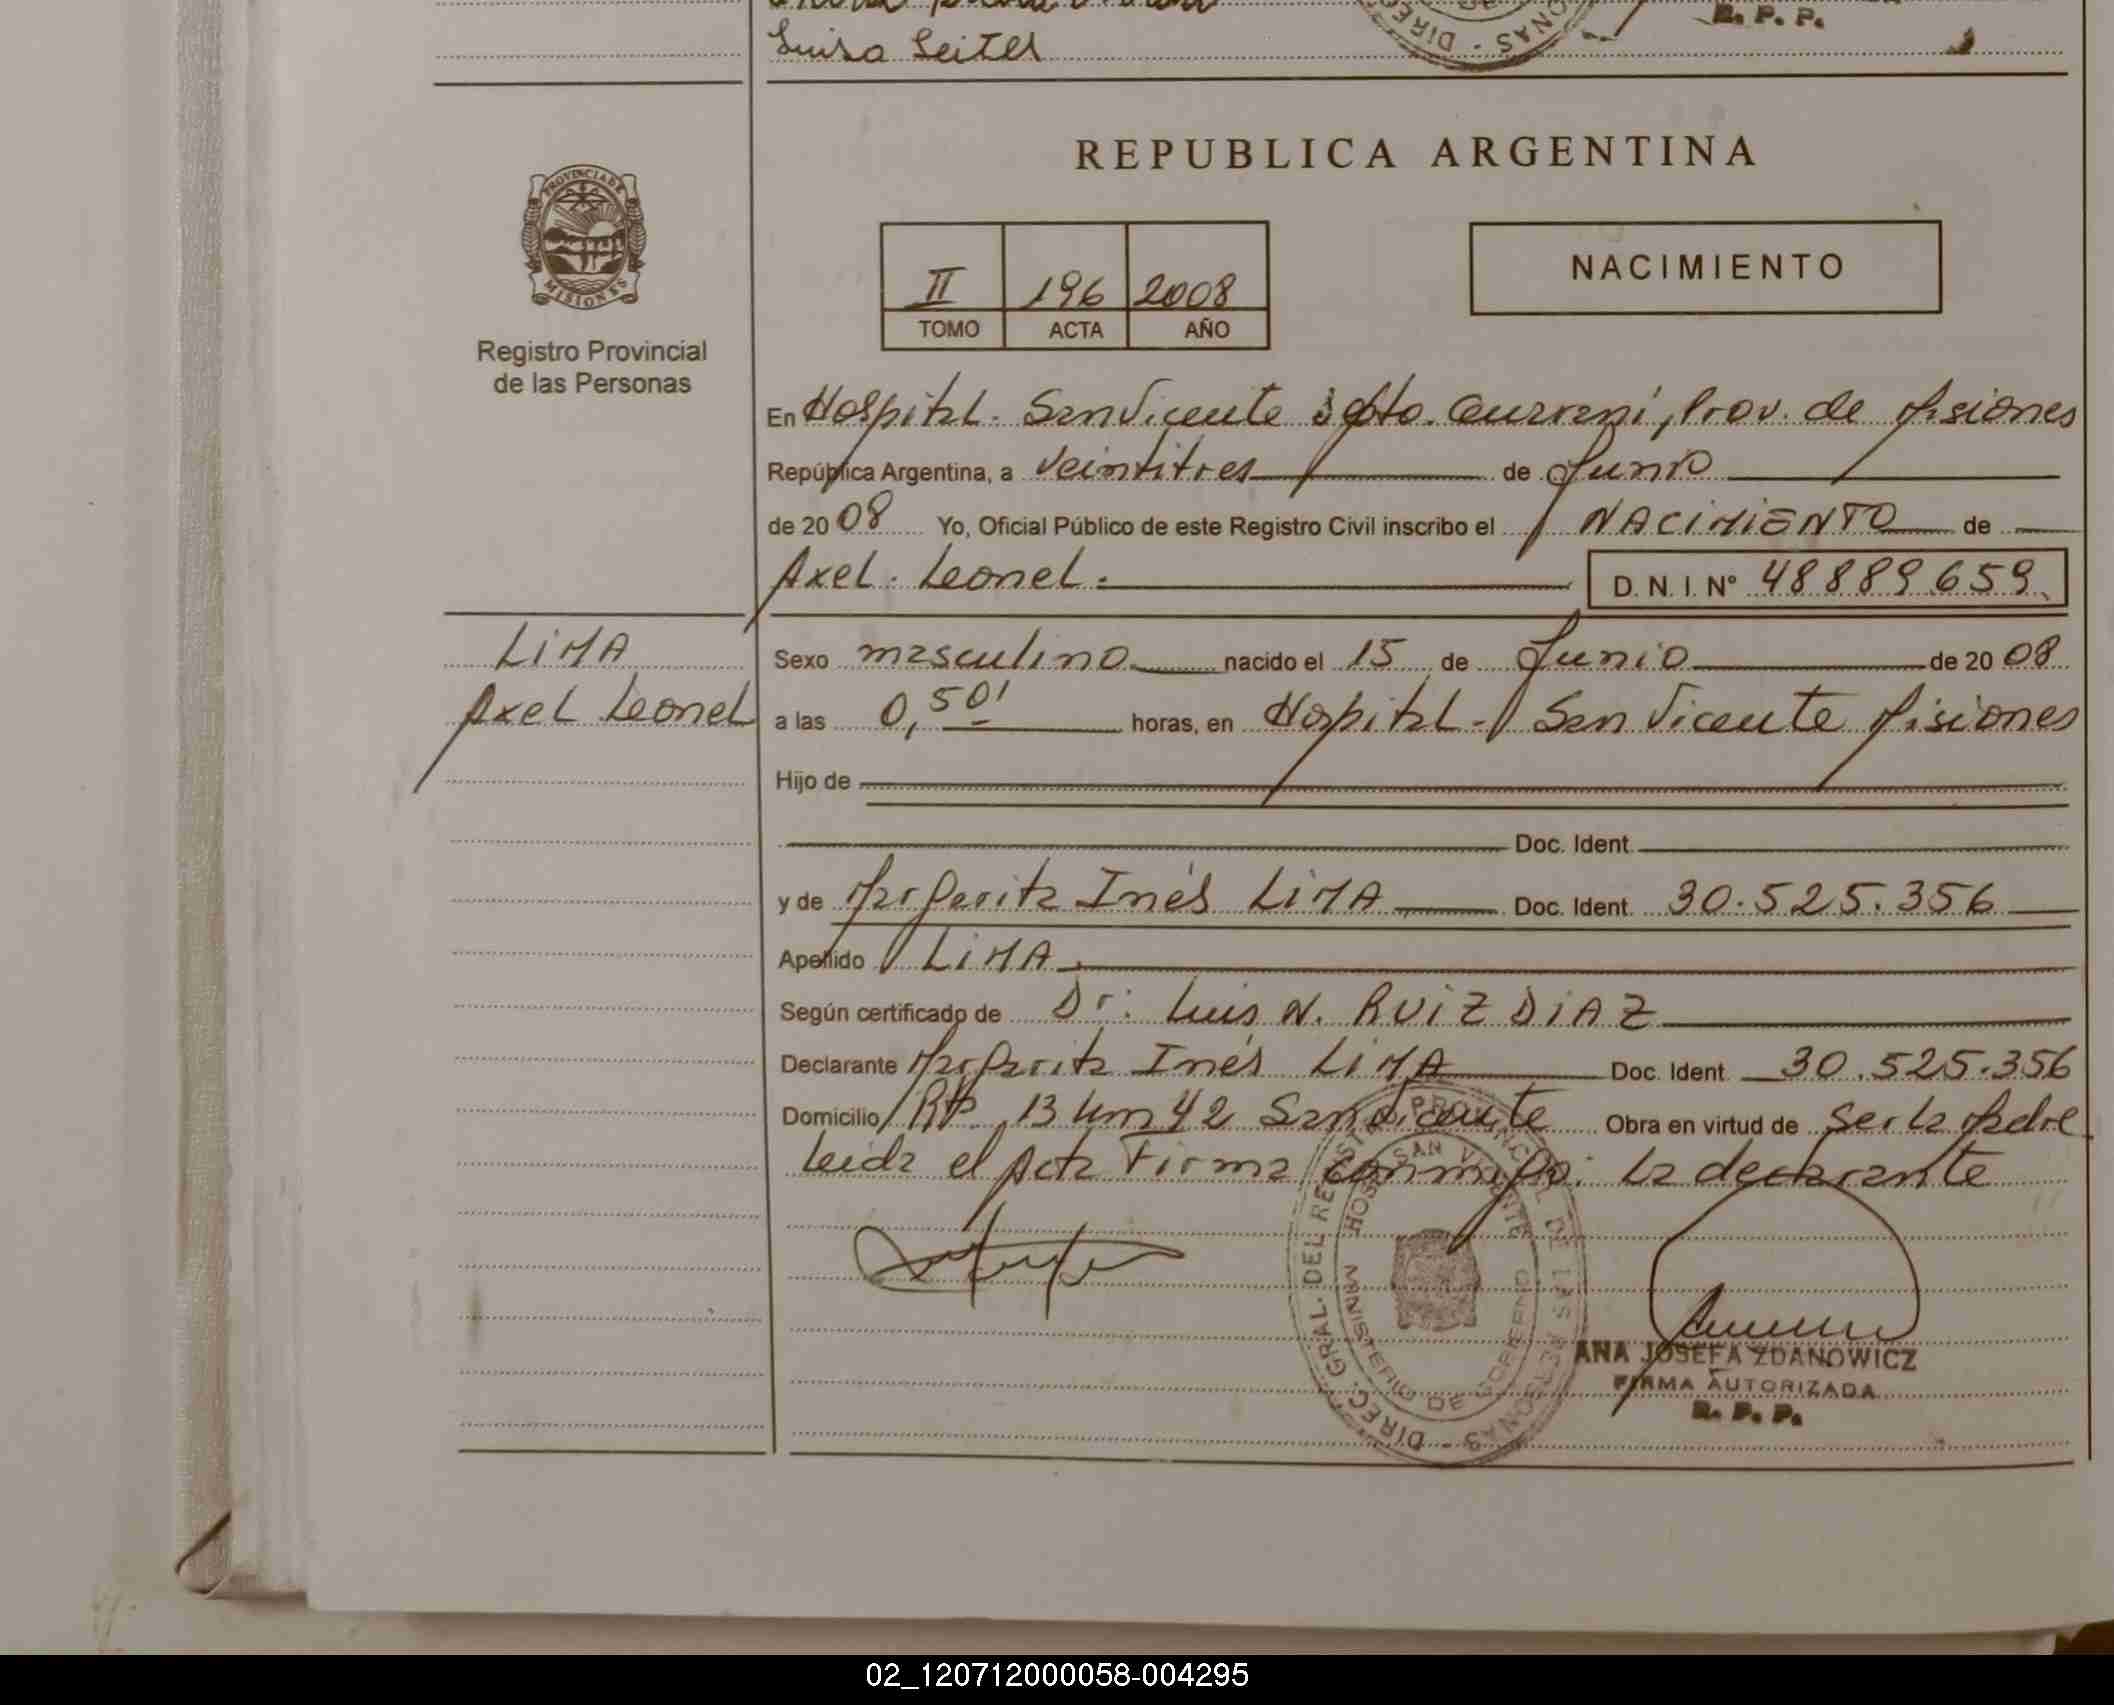 Luisa Seitel
R. P. P.
REPUBLICA ARGENTINA
PROVINCIA DE
MISIONES
Registro Provincial
de las Personas
II 196 2008
TOMO ACTA AÑO
NACIMIENTO
En Hospital. San Vicente Dpto. Guaraní, Prov. de Misiones
República Argentina, a veintitres de Junio
de 2008 Yo, Oficial Público de este Registro Civil inscribo el NACIMIENTO de
Axel Leonel. D. N. I. N° 48889.659
LIMA
Axel Leonel
Sexo masculino nacido el 15 de Junio de 2008
a las 0,50' horas, en Hospital - San Vicente Misiones
Hijo de
Doc. Ident.
y de Margarita Inés LIMA Doc. Ident. 30.525.356
Apellido LIMA
Según certificado de Dr: Luis N. RUIZ DIAZ
Declarante Margarita Inés LIMA Doc. Ident. 30.525.356
Domicilio RP. 13 km 42 San Vicente Obra en virtud de ser la Madre
Leida el Acta Firma conmigo: la declarante
DIREC. GRAL. DEL REGISTRO PROVINCIAL DE LAS PERSONAS
HOSP. SAN VICENTE
MINISTERIO DE GOBIERNO
ANA JOSEFA ZDANOWICZ
FIRMA AUTORIZADA
R. P. P.
02_120712000058-004295